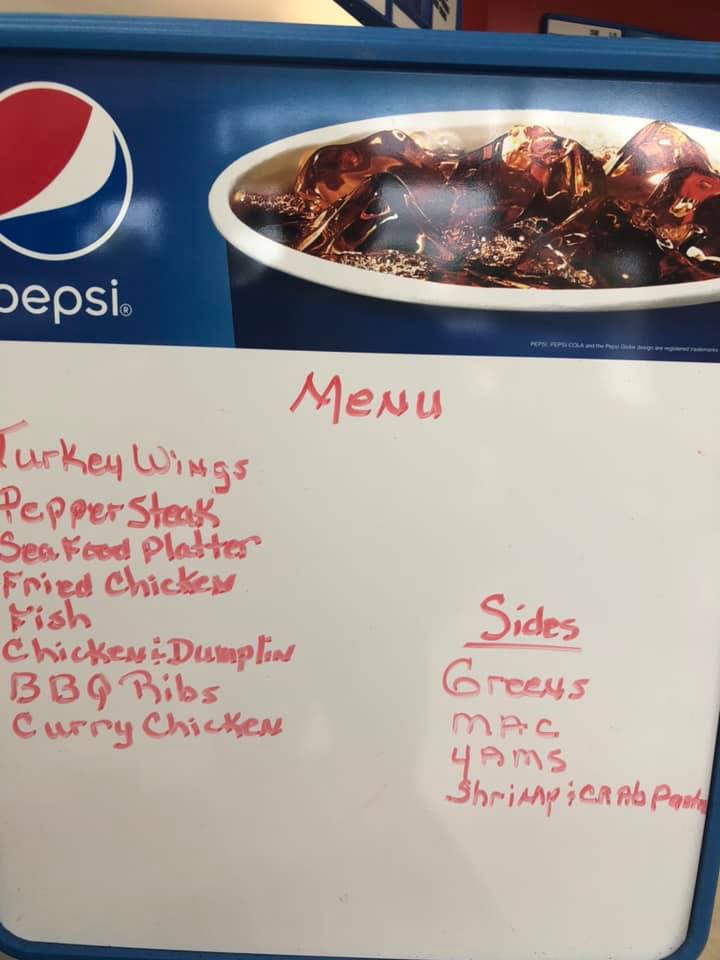 pepsi®
PEPSI, PEPSI-COLA and the Pepsi Globe design are registered trademarks
Menu
Turkey Wings
Pepper Steak
Seafood Platter
Fried Chicken
Fish
Chicken & Dumplin
BBQ Ribs
Curry Chicken
Sides
Greens
MAC
YAMS
Shrimp & CRAb